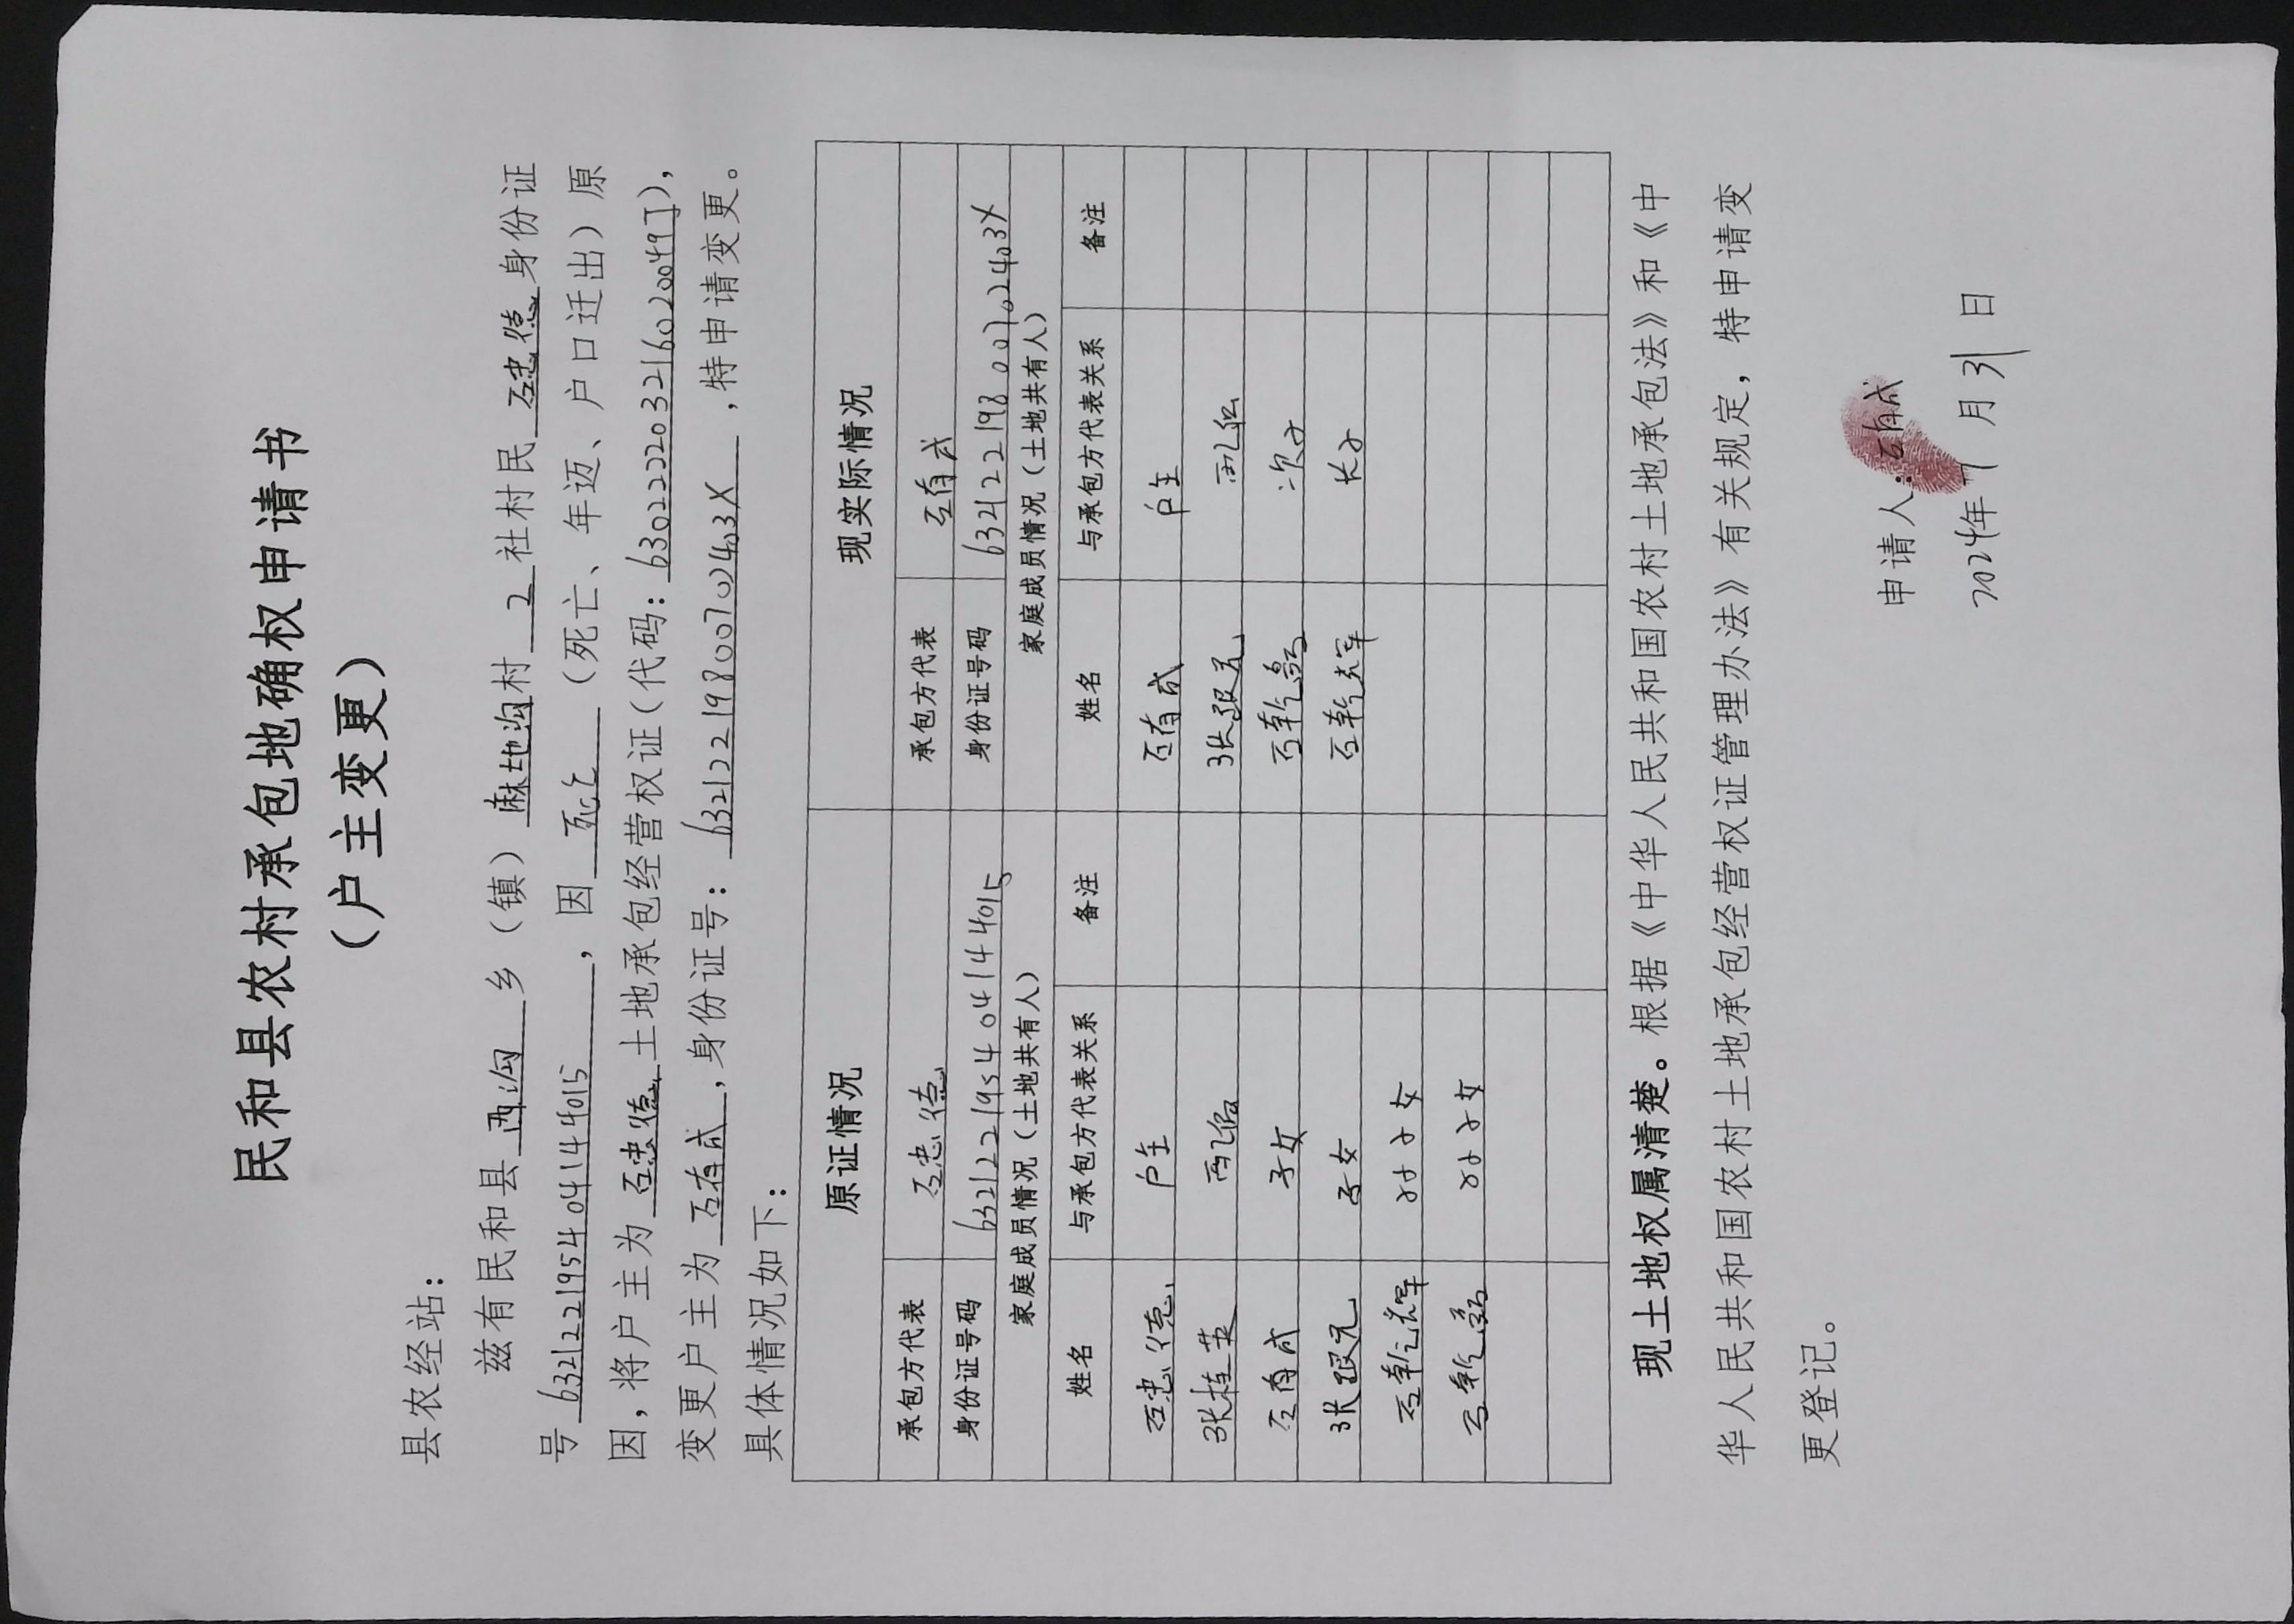 民和县农村承包地确权申请书
（户主变更）
县农经站：
兹有民和县 西沟 乡（镇）麻地沟村 2 社村民 石忠德 身份证
号 632122195404144015 ，因 死亡 （死亡、年迈、户口迁出）原
因，将户主为 石忠德 土地承包经营权证（代码：630222203216020049J），
变更户主为 石有成 ，身份证号： 63212219800702403X ，特申请变更。
具体情况如下：
原证情况 现实际情况
承包方代表 石忠德 承包方代表 石有成
身份证号码 632122195404144015 身份证号码 63212219800702403X
家庭成员情况（土地共有人） 家庭成员情况（土地共有人）
姓名 与承包方代表关系 备注 姓名 与承包方代表关系 备注
石忠德 户主 石有成 户主
张桂英 配偶 张跟元 配偶
石有成 子女 石乾磊 次子
张跟元 子女 石乾辉 长子
石乾辉 孙子女
石乾磊 孙子女
现土地权属清楚。根据《中华人民共和国农村土地承包法》和《中
华人民共和国农村土地承包经营权证管理办法》有关规定，特申请变
更登记。
申请人：石有成
2024年7月31日